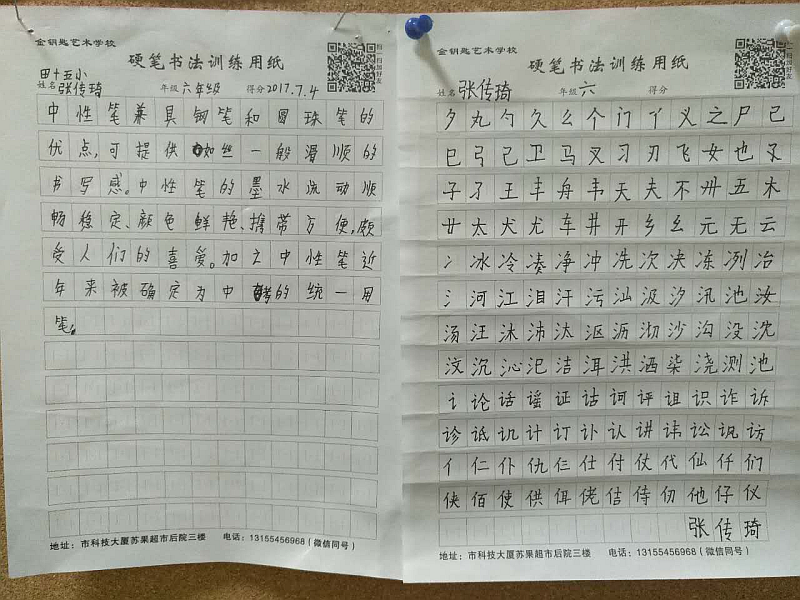 金钥匙艺术学校
硬笔书法训练用纸
扫一扫加好友
田十五小
姓名 张传琦 年级 六年级 得分 2017.7.4
中性笔兼具钢笔和圆珠笔的
优点,可提供如丝一般滑顺的
书写感。中性笔的墨水流动顺
畅稳定、颜色鲜艳、携带方便,颇
受人们的喜爱。加之中性笔近
年来被确定为中考的统一用
笔。
地址:市科技大厦苏果超市后院三楼 电话:13155456968(微信同号)
金钥匙艺术学校
硬笔书法训练用纸
扫一扫加好友
姓名 张传琦 年级 六 得分
夕丸勺久么个门丫义之尸己
巳弓己卫马叉习刃飞女也叉
子孑王丰舟韦天夫不卅五木
廿太犬尤车井开乡幺元无云
冫冰冷凑净冲冼次决冻冽冶
氵河江泪汗污汕汲汐汛池汝
汤汪沐沛汰沤沥沏沙沟没沈
汶沉沁汜洁洱洪洒柒浇测池
讠论话谣证诂诃评诅识诈诉
诊诋讥计订讣认讲讳讼讽访
亻仁仆仇仨仕付仗代仙仟们
侠佰使供佴佬佶侍仞他仔仪
张传琦
地址:市科技大厦苏果超市后院三楼 电话:13155456968(微信同号)